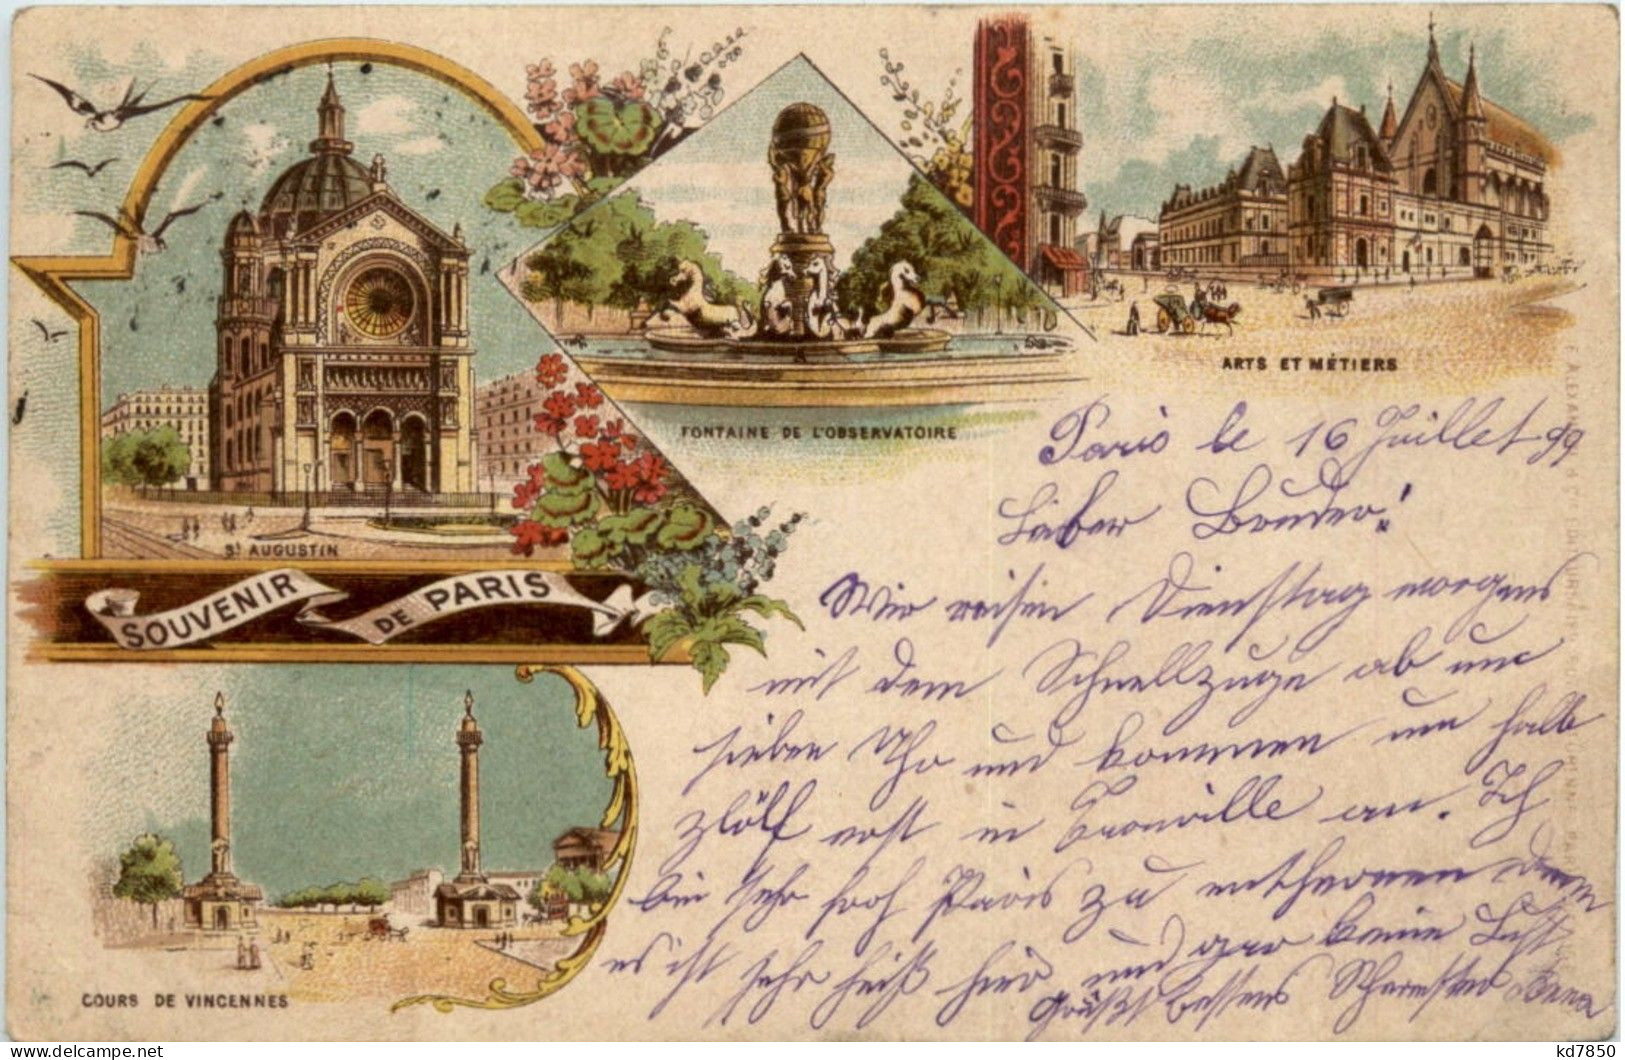 ST AUGUSTIN
FONTAINE DE L'OBSERVATOIRE
ARTS ET MÉTIERS
SOUVENIR DE PARIS
COURS DE VINCENNES
Paris le 16 Juillet 99
Lieber Bruder!
Wir reisen Dienstag morgens
mit dem Schnellzuge ab um
sieben Uhr und kommen um halb
zwölf erst in Trouville an. Ich
bin sehr froh Paris zu entfernen denn
es ist sehr heiß hier und gar keine Luft
Grüßt bestens Schwester
kd7850